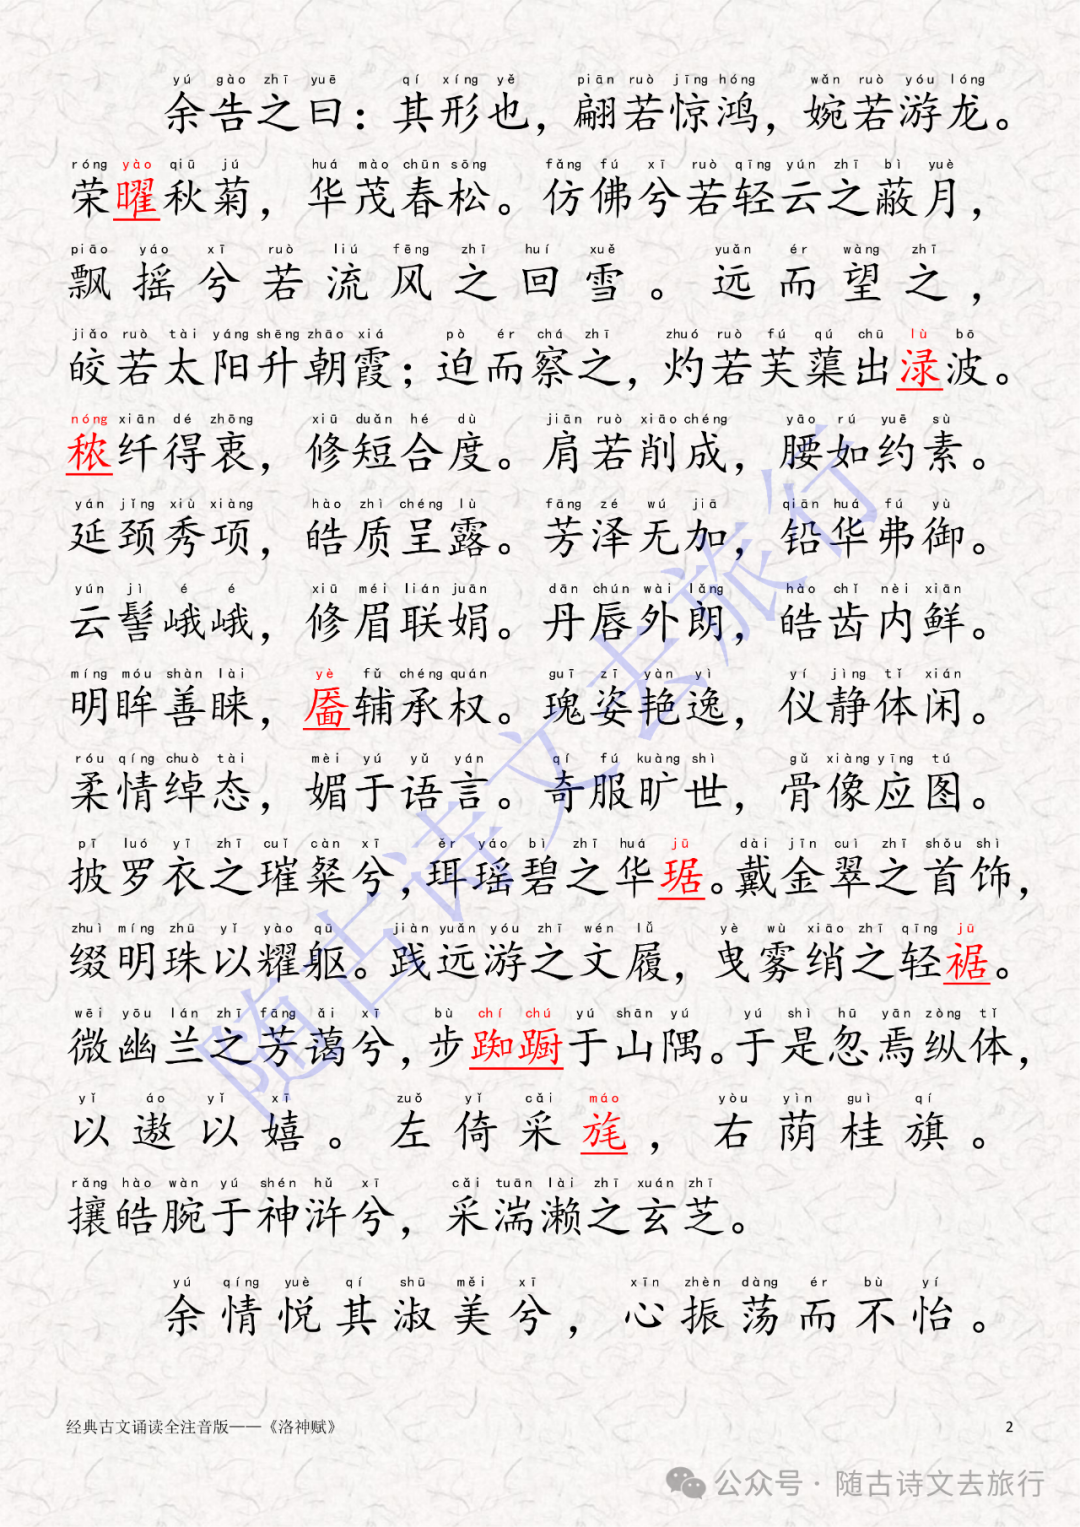 yú gào zhī yuē qí xíng yě piān ruò jīng hóng wǎn ruò yóu lóng
余告之曰：其形也，翩若惊鸿，婉若游龙。
róng yào qiū jú huá mào chūn sōng fǎng fú xī ruò qīng yún zhī bì yuè
荣曜秋菊，华茂春松。仿佛兮若轻云之蔽月，
piāo yáo xī ruò liú fēng zhī huí xuě yuǎn ér wàng zhī
飘摇兮若流风之回雪。远而望之，
jiǎo ruò tài yáng shēng zhāo xiá pò ér chá zhī zhuó ruò fú qú chū lù bō
皎若太阳升朝霞；迫而察之，灼若芙蕖出渌波。
nóng xiān dé zhōng xiū duǎn hé dù jiān ruò xiāo chéng yāo rú yuē sù
秾纤得衷，修短合度。肩若削成，腰如约素。
yán jǐng xiù xiàng hào zhì chéng lù fāng zé wú jiā qiān huá fú yù
延颈秀项，皓质呈露。芳泽无加，铅华弗御。
yún jì é é xiū méi lián juān dān chún wài lǎng hào chǐ nèi xiān
云髻峨峨，修眉联娟。丹唇外朗，皓齿内鲜。
míng móu shàn lài yè fǔ chéng quán guī zī yàn yì yí jìng tǐ xián
明眸善睐，靥辅承权。瑰姿艳逸，仪静体闲。
róu qíng chuò tài mèi yú yǔ yán qí fú kuàng shì gǔ xiàng yīng tú
柔情绰态，媚于语言。奇服旷世，骨像应图。
pī luó yī zhī cuǐ càn xī ěr yáo bì zhī huá jū dài jīn cuì zhī shǒu shì
披罗衣之璀粲兮，珥瑶碧之华琚。戴金翠之首饰，
zhuì míng zhū yǐ yào qū jiàn yuǎn yóu zhī wén lǚ yè wù xiāo zhī qīng jū
缀明珠以耀躯。践远游之文履，曳雾绡之轻裾。
wēi yōu lán zhī fāng ǎi xī bù chí chú yú shān yú yú shì hū yān zòng tǐ
微幽兰之芳蔼兮，步踟蹰于山隅。于是忽焉纵体，
yǐ áo yǐ xī zuǒ yǐ cǎi máo yòu yìn guì qí
以遨以嬉。左倚采旄，右荫桂旗。
rǎng hào wàn yú shén hǔ xī cǎi tuān lài zhī xuán zhī
攘皓腕于神浒兮，采湍濑之玄芝。
yú qíng yuè qí shū měi xī xīn zhèn dàng ér bù yí
余情悦其淑美兮，心振荡而不怡。
随古诗文去旅行
经典古文诵读全注音版——《洛神赋》 2
公众号·随古诗文去旅行